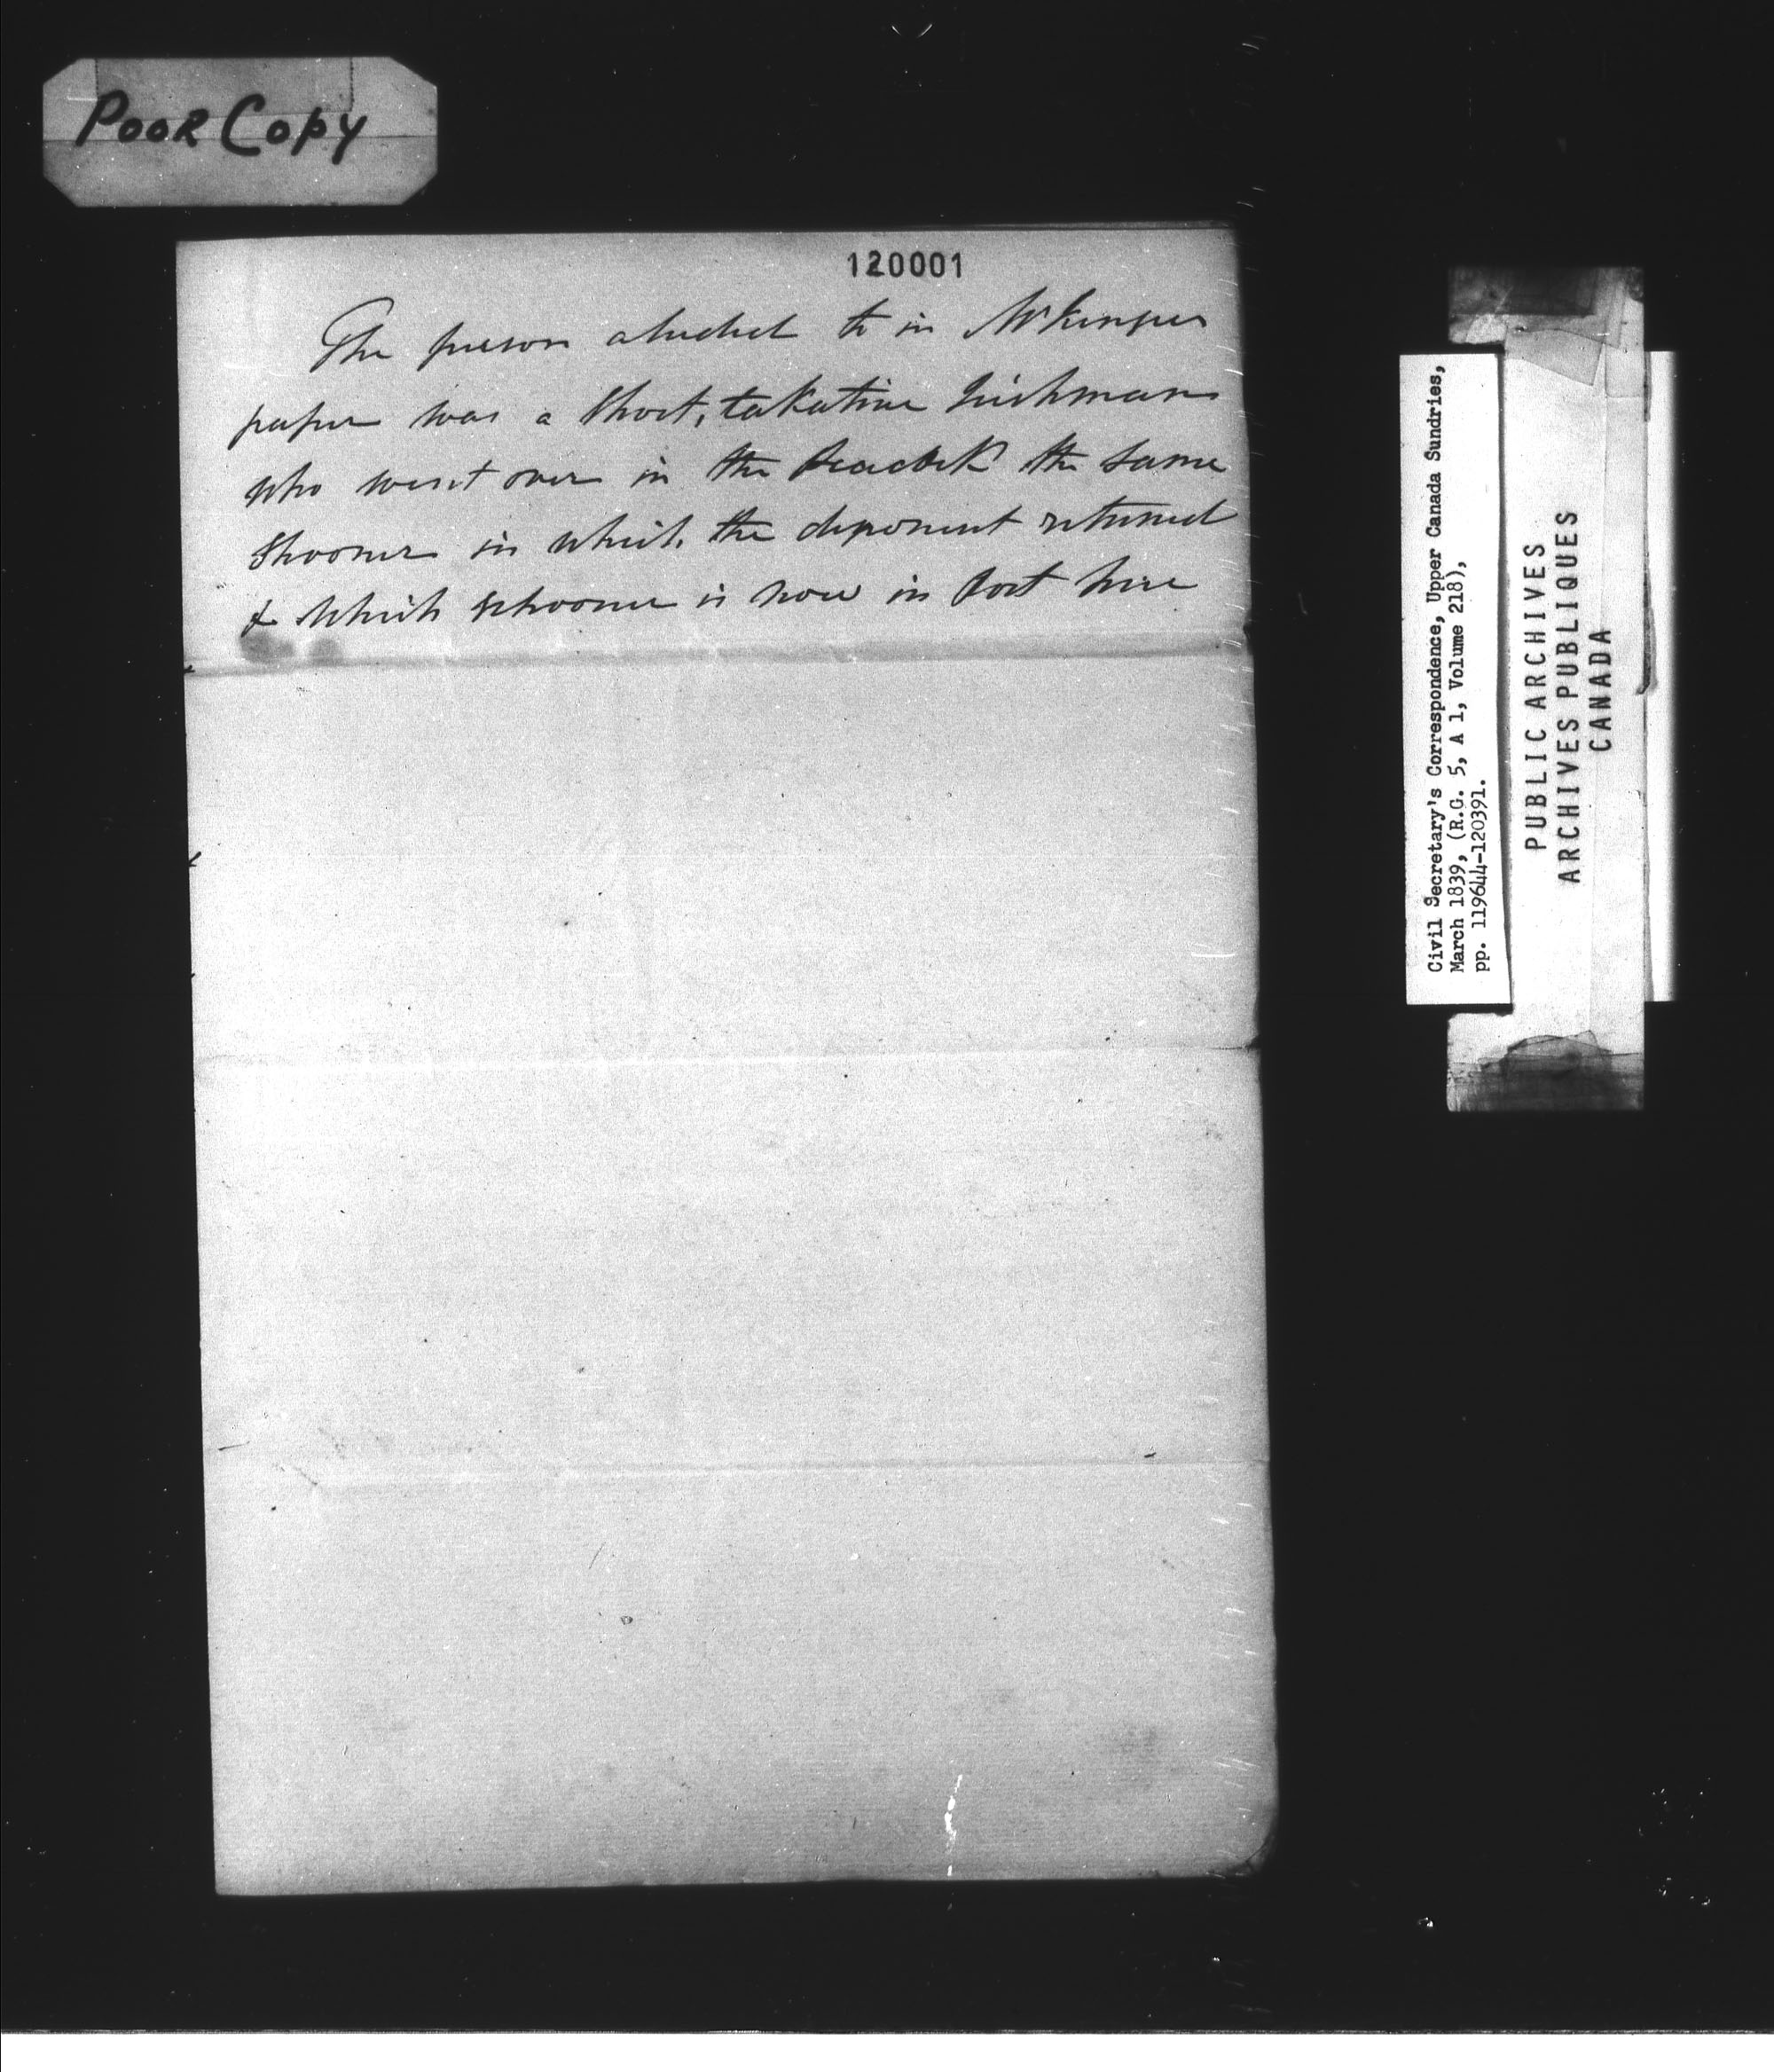 Poor Copy
120001
The person aluded to in
paper was a Short, talkative Irishman
who went over in the Peacock the same
Shooner in which the deponent returned
& which schooner is now in Port here
Civil Secretary's Correspondence, Upper Canada Sundries,
March 1839, (R.G. 5, A 1, Volume 218),
pp. 119644-120391.
PUBLIC ARCHIVES
ARCHIVES PUBLIQUES
CANADA